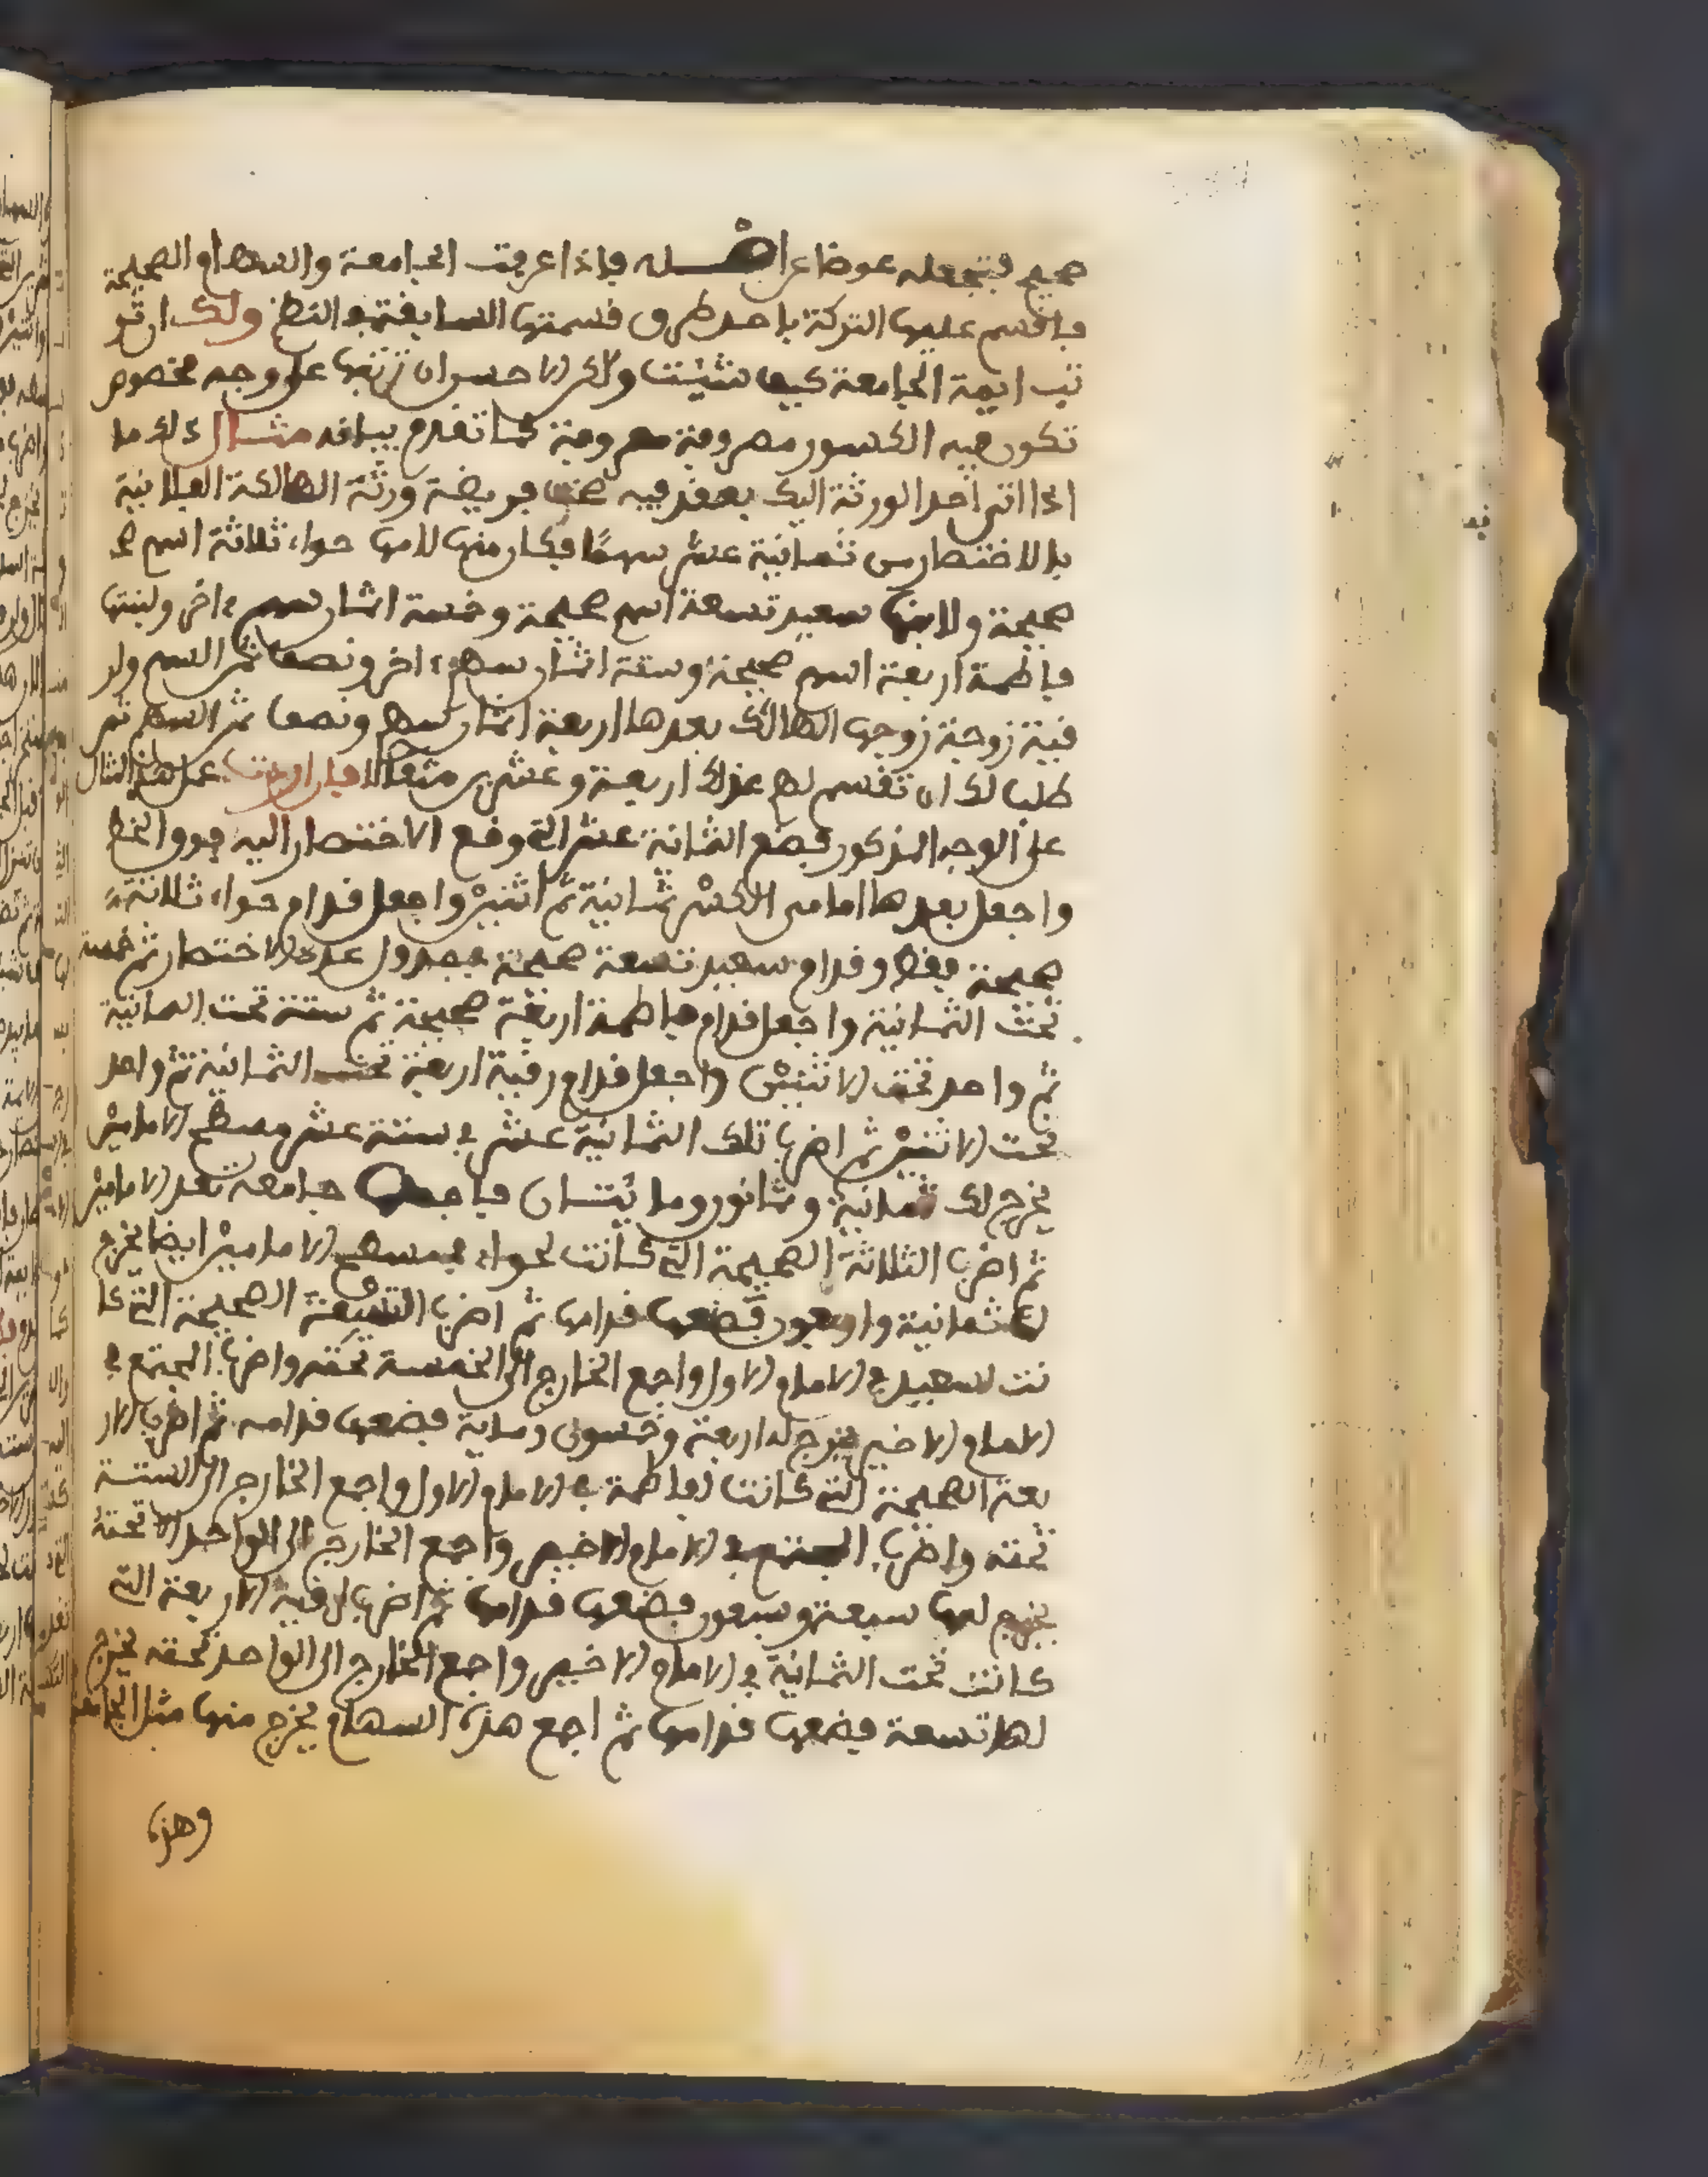 صحيح فتجعله عوضا عن اصله فاذا عرفت الجامعة والسهام الصحيحة
فاقسم عليها التركة باحد طرق قسمتها السابقة في النظم ولك ان تر
تب ايمة الجامعة كيف شئت ولكن الاحسن ان ترتبها على وجه مخصوص
تكون فيه الكسور مصروفة معروفة كما تقدم بيانه مثال ذلك ما
اذا اتى احد الورثة اليك بعقد فيه صحت فريضة ورثة الهالكة الفلانية
بالاختصار من ثمانية عشر سهمًا فكان منها لامها حواء ثلاثة اسهم
صحيحة ولابنها سعيد تسعة اسهم صحيحة وخمسة اثمان سهم ء اخر ولبنتها
فاطمة اربعة اسهم صحيحة وستة اثمان سهم ء اخر ونصف ثمن السهم ولر
قية زوجة زوجها الهالك بعدها اربعة اثمان سهم ونصف ثمن السهم ثم
طلب لك ان تقسم لهم عدد اربعة وعشرين مثقالا فان اردت عمل هذا المثال
على الوجه المذكور فضع الثمانية عشر التي وقع الاختصار اليه فوق الخط
واجعل بعدها امامي الكسر ثمانية ثم اثنين واجعل قدام حواء ثلاثة
صحيحة فقط وقدام سعيد تسعة صحيحة بجدول عدد الاختصار ثم خمسة
تحت الثمانية واجعل قدام فاطمة اربعة صحيحة ثم ستة تحت الثمانية
ثم واحد تحت الاثنين واجعل قدام رقية اربعة تحت الثمانية ثم واحد
تحت الاثنين ثم اضرب تلك الثمانية عشر في ستة عشر مسطح الامامين
يخرج لك ثمانية وثمانون ومايتان فاجعلها جامعة بعد الامامين
ثم اضرب الثلاثة الصحيحة التي كانت لحواء في مسطح الامامين ايضا يخرج
لك ثمانية واربعون فضعها قدامها ثم اضرب التسعة الصحيحة التي كا
نت لسعيد في الامام الاول واجمع الخارج الى الخمسة تحته واضرب المجتمع في
الامام الاخير يخرج له اربعة وخمسون وماية فضعها قدامه ثم اضرب الار
بعة الصحيحة التي كانت لفاطمة في الامام الاول واجمع الخارج الى الستة
تحته واضرب المجتمع في الامام الاخير واجمع الخارج الى الواحد الا تحته
يخرج لها سبعة وسبعون فضعها قدامها ثم اضرب لرقية الاربعة التي
كانت تحت الثمانية في الامام الاخير واجمع الخارج الى الواحد تحته يخرج
لها تسعة فضعها قدامها ثم اجمع هذه السهام يخرج منها مثل الجامعة
وهذه